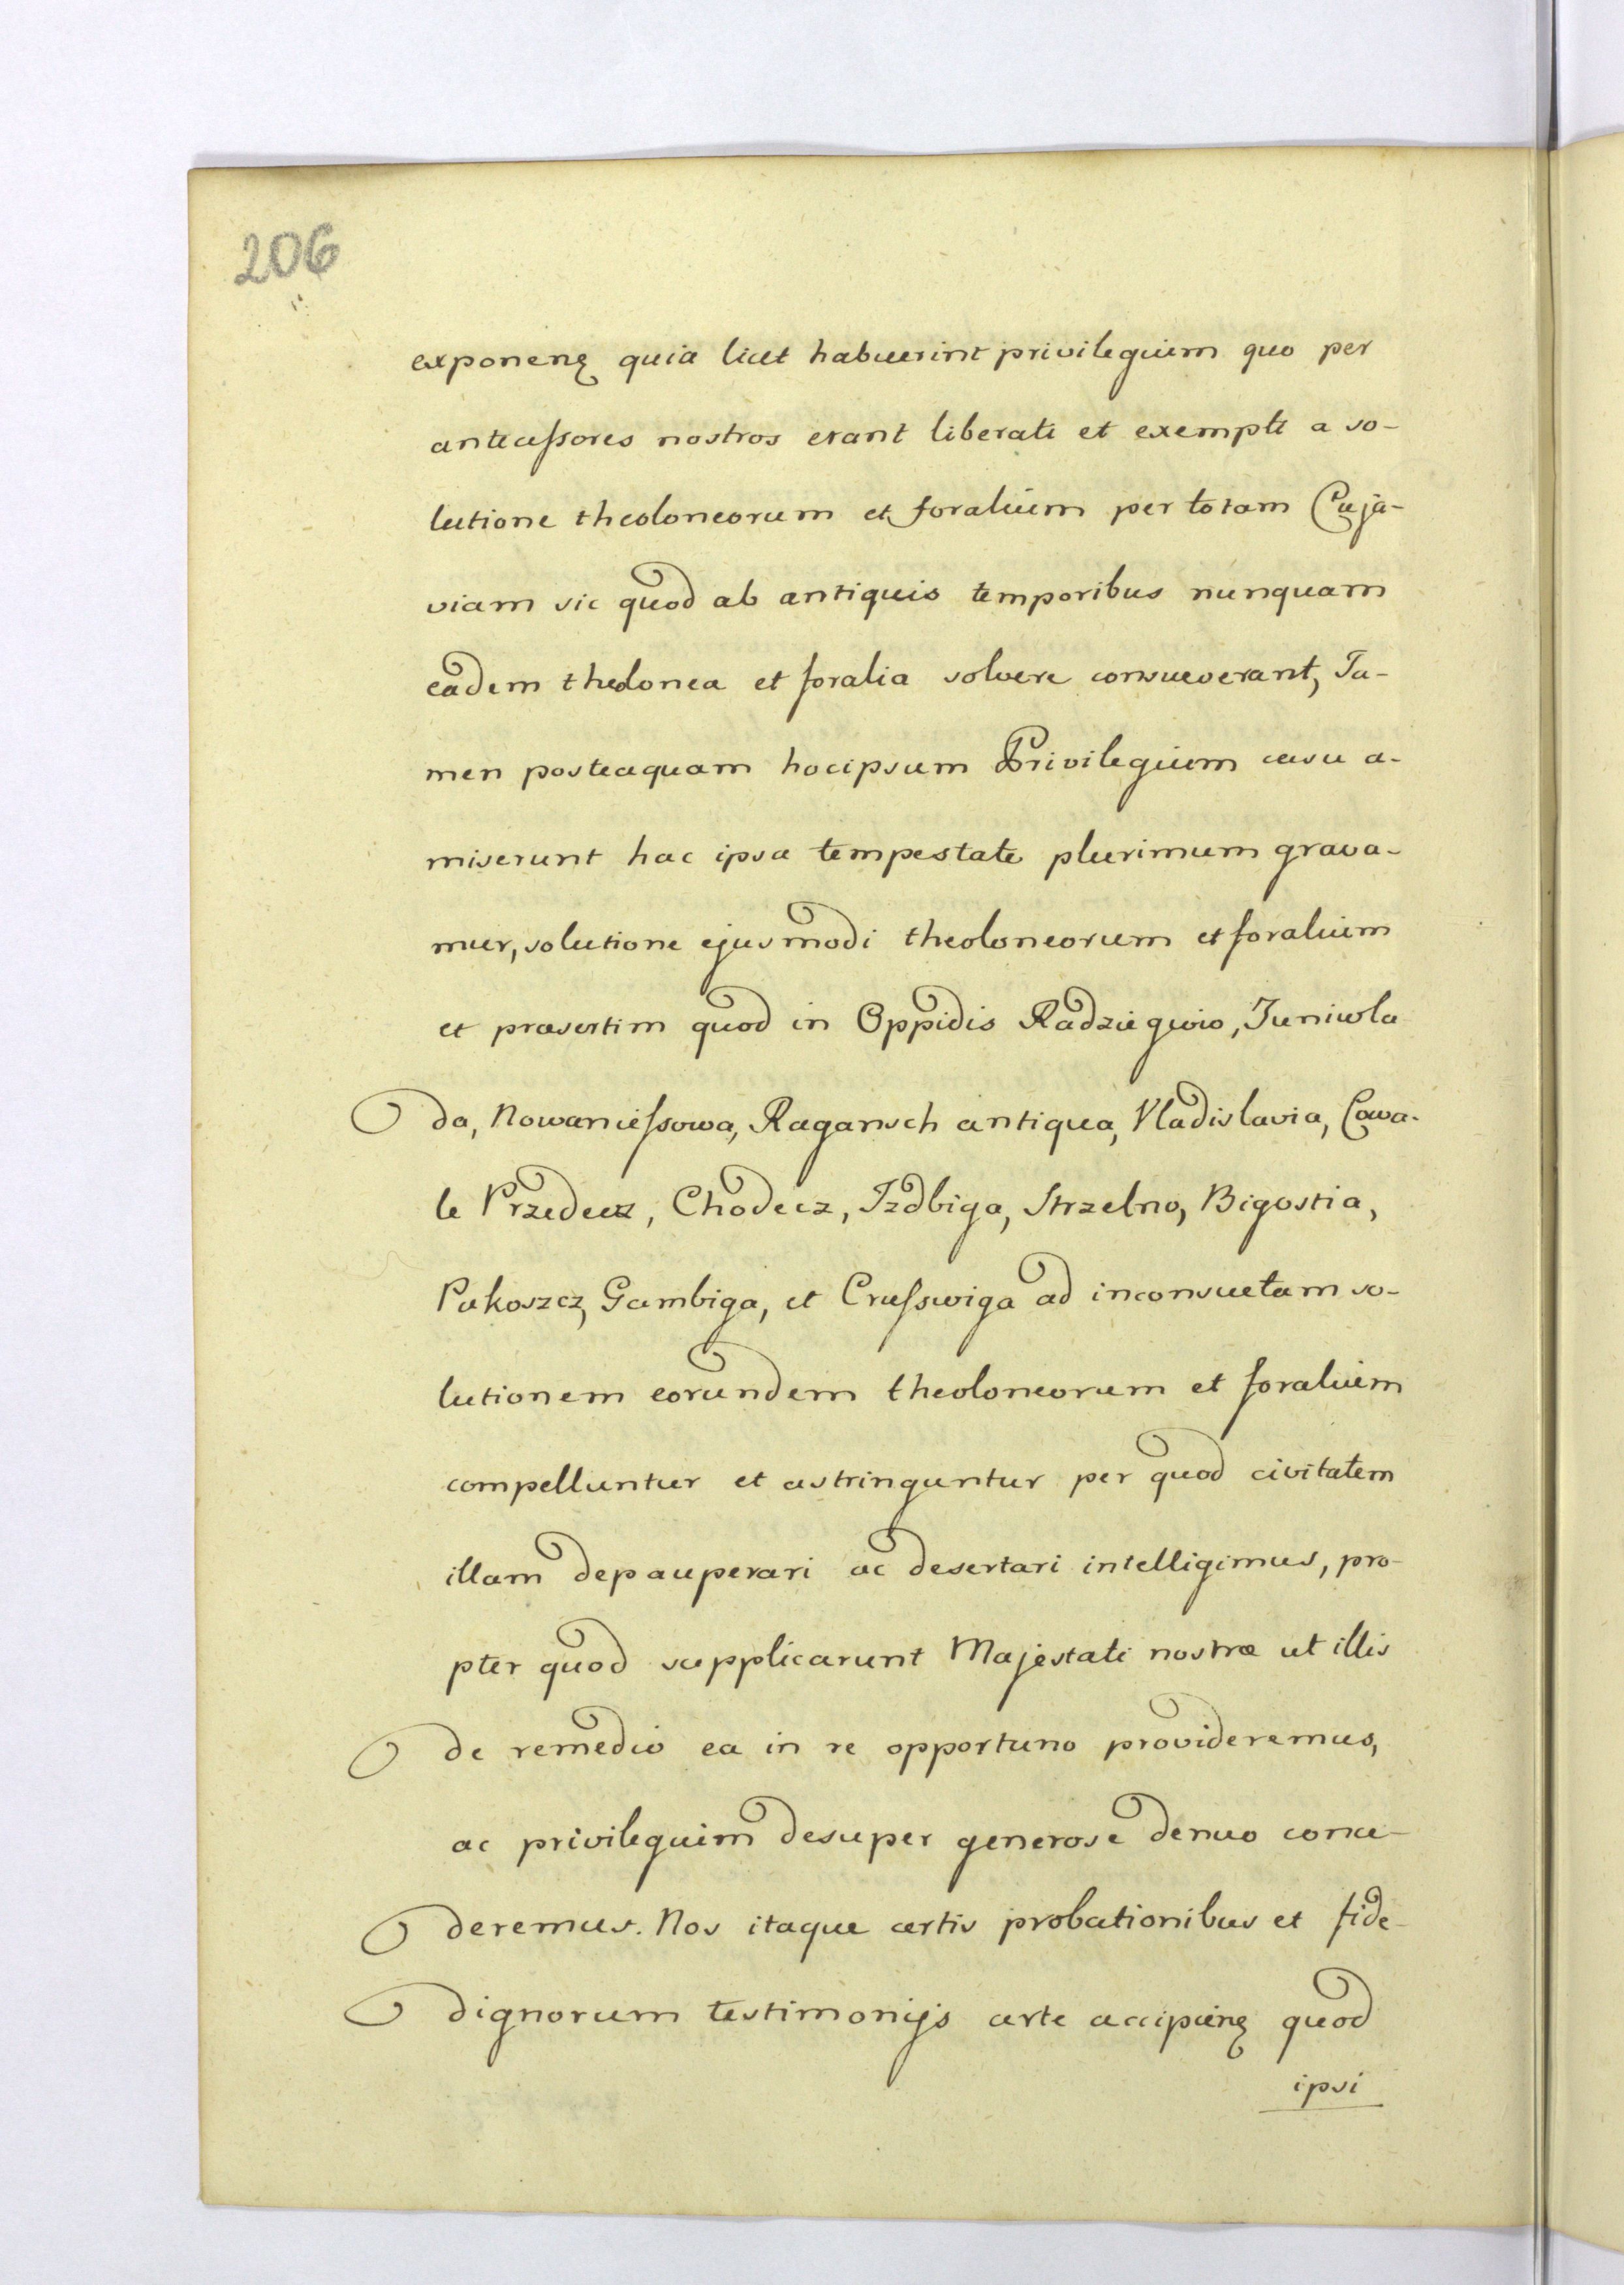 206
exponenꝫ quia licet habuerint privilegium quo per
antecessores nostros erant liberati et exempti a so-
lutione theoloneorum et foralium per totam Cuja-
viam sic quod ab antiquis temporibus nunquam
eadem thelonea et foralia solvere consueverant, Ta-
men posteaquam hocipsum Privilegium casu a-
miserunt hac ipsa tempestate plurimum grava-
mur, solutione ejusmodi theoloneorum et foralium
et præsertim quod in Oppidis Radziegwio, Juniwla
da, Nowaniessowa, Ragansch antiqua, Vladislavia, Cawa-
le Przedecz, Chodecz, Izdbiga, Strzelno, Bigostia,
Pakoszcz, Gambiga, et Crusswiga ad inconsuetam so-
lutionem eorundem theoloneorum et foralium
compelluntur et astringuntur per quod civitatem
illam depauperari ac desertari intelligimus, pro-
pter quod supplicarunt Majestati nostræ ut illis
de remedio ea in re opportuno provideremus,
ac privilegium desuper generose denuo conce-
deremus. Nos itaque certis probationibus et fide-
dignorum testimonijs certe accipienꝫ quod
ipsi